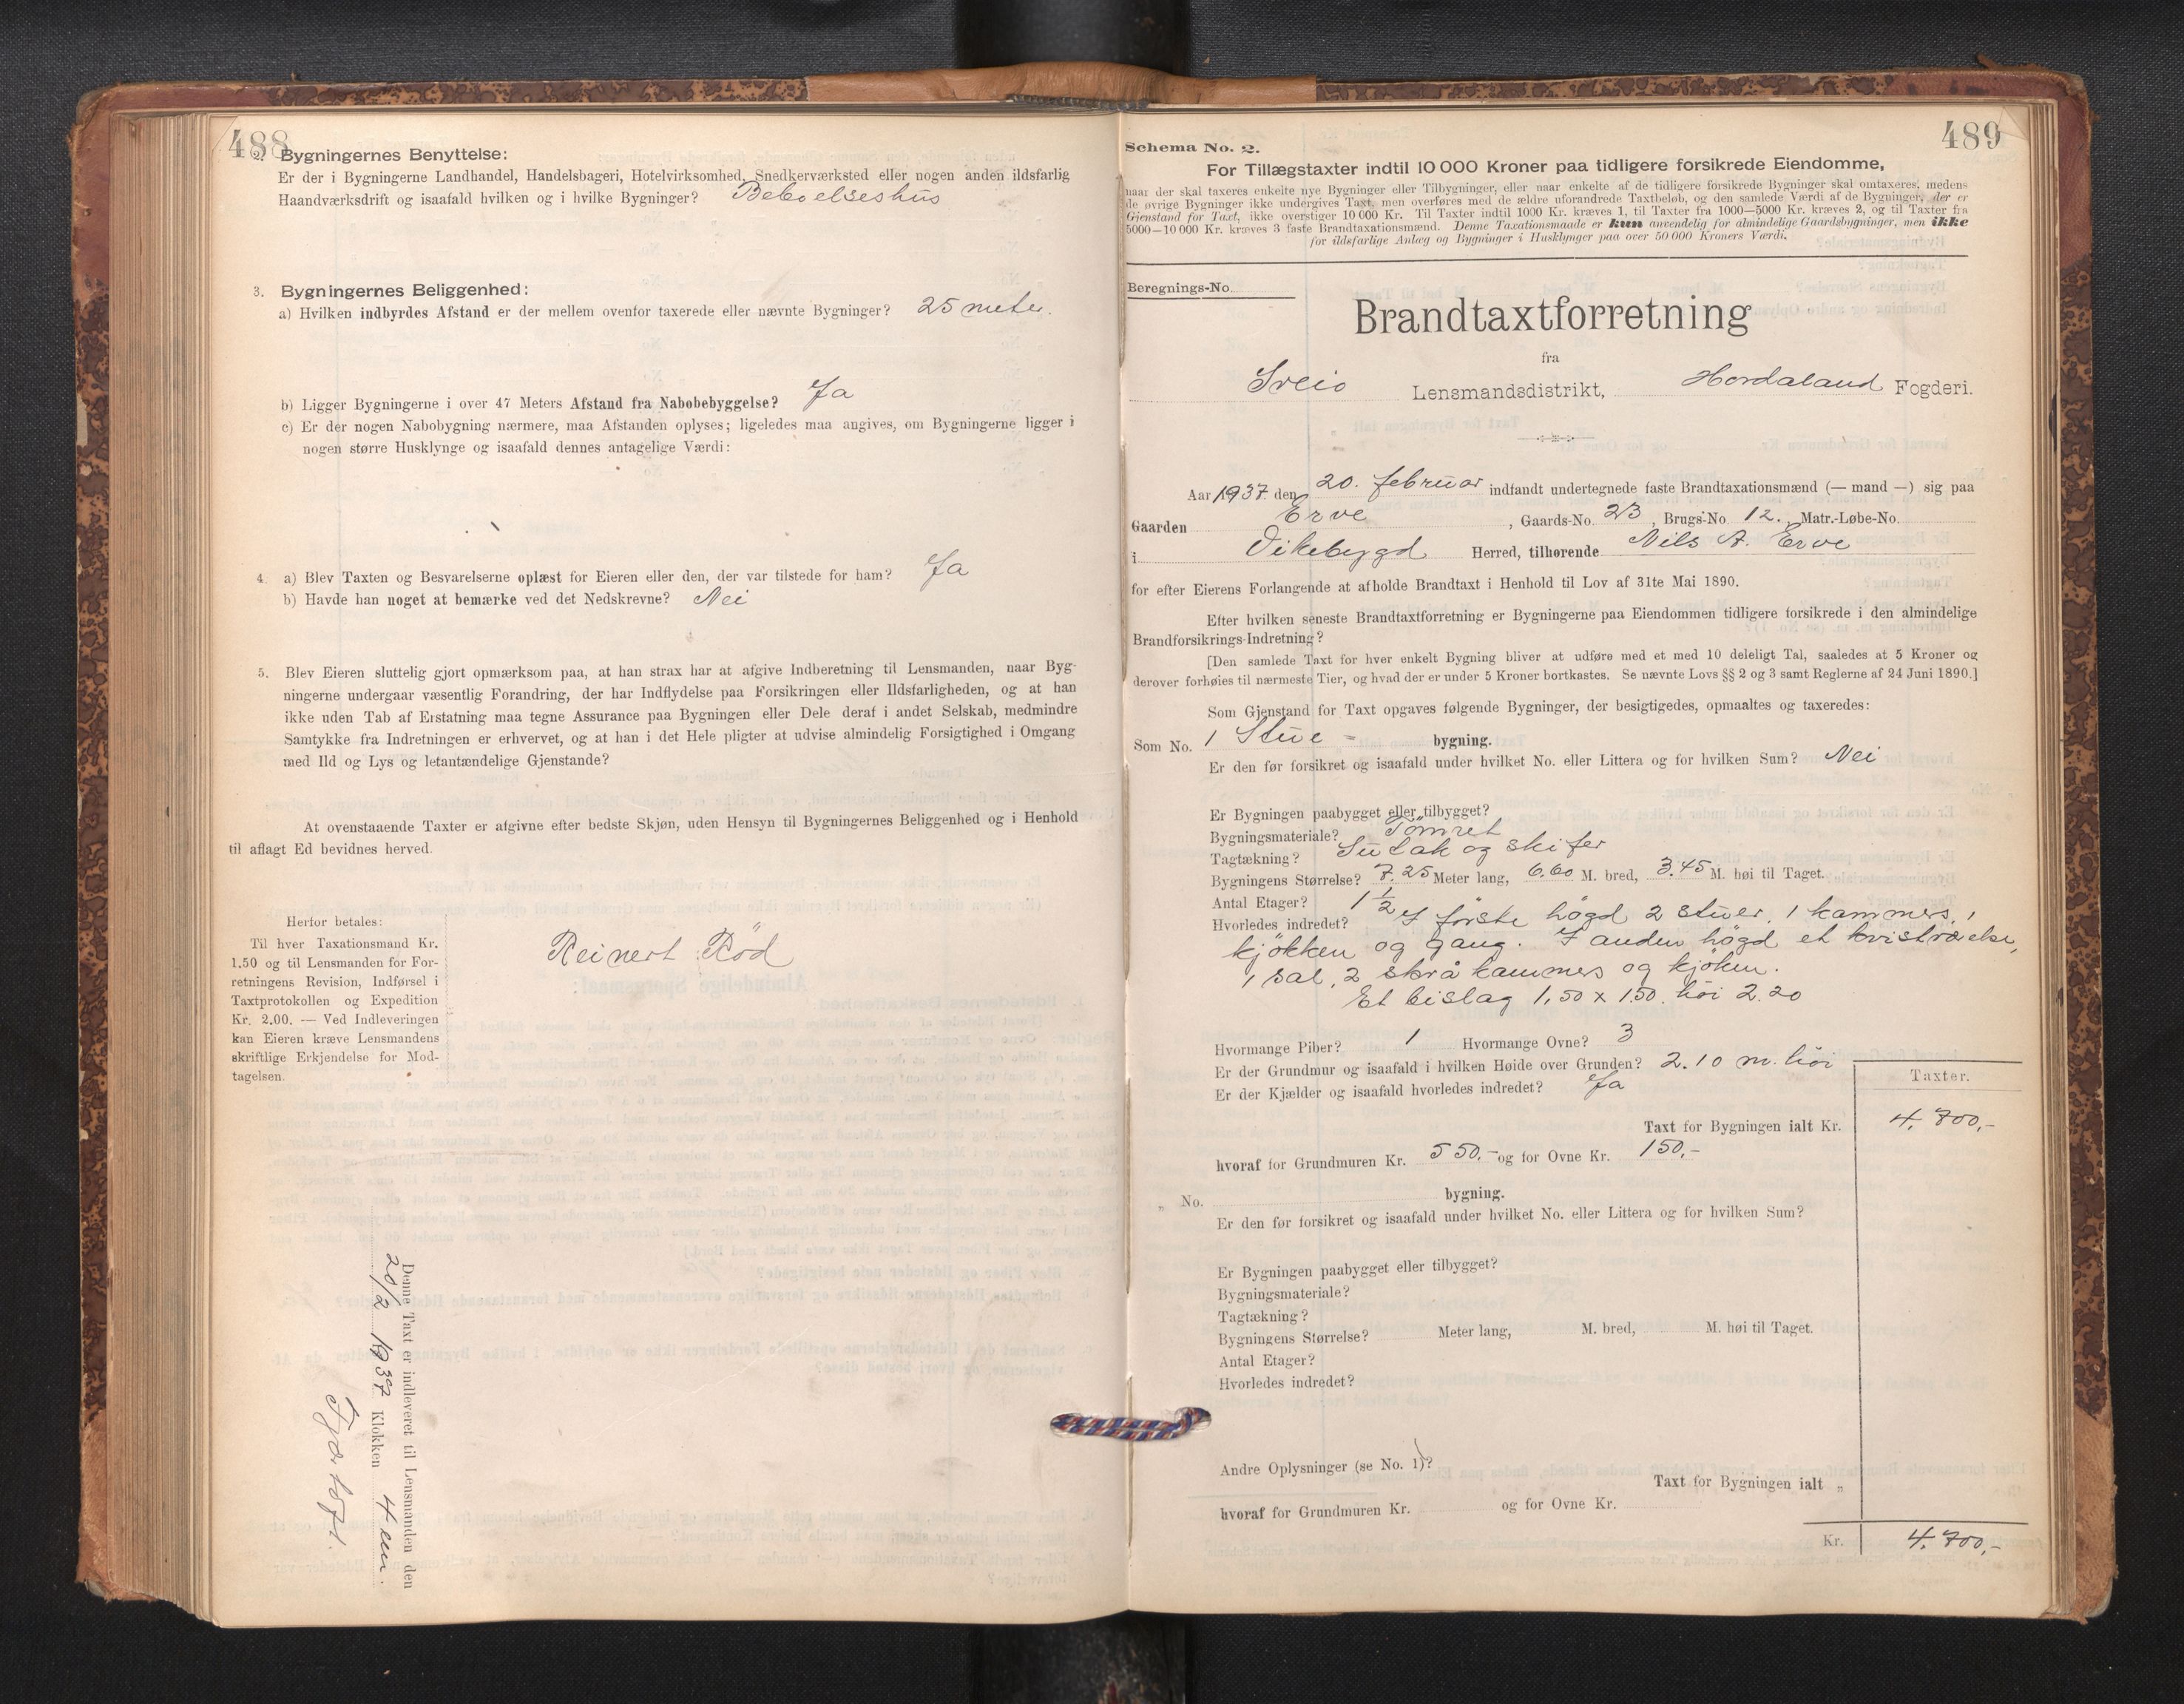 488
2. Bygningernes Benyttelse:
Er der i Bygningerne Landhandel, Handelsbageri, Hotelvirksomhed, Snedkerværksted eller nogen anden ildsfarlig
Haandværksdrift og isaafald hvilken og i hvilke Bygninger? Beboelseshus
3. Bygningernes Beliggenhed:
a) Hvilken indbyrdes Afstand er der mellem ovenfor taxerede eller nævnte Bygninger? 25 meter.
b) Ligger Bygningerne i over 47 Meters Afstand fra Nabobebyggelse? Ja
c) Er der nogen Nabobygning nærmere, maa Afstanden oplyses; ligeledes maa angives, om Bygningerne ligger i
nogen større Husklynge og isaafald dennes antagelige Værdi:
4. a) Blev Taxten og Besvarelserne oplæst for Eieren eller den, der var tilstede for ham? Ja
b) Havde han noget at bemærke ved det Nedskrevne? Nei
5. Blev Eieren sluttelig gjort opmærksom paa, at han strax har at afgive Indberetning til Lensmanden, naar Byg-
ningerne undergaar væsentlig Forandring, der har Indflydelse paa Forsikringen eller Ildsfarligheden, og at han
ikke uden Tab af Erstatning maa tegne Assurance paa Bygningen eller Dele deraf i andet Selskab, medmindre
Samtykke fra Indretningen er erhvervet, og at han i det Hele pligter at udvise almindelig Forsigtighed i Omgang
med Ild og Lys og letantændelige Gjenstande?
At ovenstaaende Taxter er afgivne efter bedste Skjøn, uden Hensyn til Bygningernes Beliggenhed og i Henhold
til aflagt Ed bevidnes herved.
Herfor betales:
Til hver Taxationsmand Kr.
1.50 og til Lensmanden for For-
retningens Revision, Indførsel i
Taxtprotokollen og Expedition
Kr. 2.00. — Ved Indleveringen
kan Eieren kræve Lensmandens
skriftlige Erkjendelse for Mod-
tagelsen.
Reinert Rød
Denne Taxt er indleveret til Lensmanden den
20/2 1937 Klokken 4 em.
489
Schema No. 2.
For Tillægstaxter indtil 10 000 Kroner paa tidligere forsikrede Eiendomme,
naar der skal taxeres enkelte nye Bygninger eller Tilbygninger, eller naar enkelte af de tidligere forsikrede Bygninger skal omtaxeres, medens
de øvrige Bygninger ikke undergives Taxt, men overføres med de ældre uforandrede Taxtbeløb, og den samlede Værdi af de Bygninger, der er
Gjenstand for Taxt, ikke overstiger 10 000 Kr. Til Taxter indtil 1000 Kr. kræves 1, til Taxter fra 1000—5000 Kr. kræves 2, og til Taxter fra
5000—10 000 Kr. kræves 3 faste Brandtaxationsmænd. Denne Taxationsmaade er kun anvendelig for almindelige Gaardsbygninger, men ikke
for ildsfarlige Anlæg og Bygninger i Husklynger paa over 50 000 Kroners Værdi.
Beregnings-No.
Brandtaxtforretning
fra
Sveio Lensmandsdistrikt, Hordaland Fogderi.
Aar 1937 den 20. februar indfandt undertegnede faste Brandtaxationsmænd (— mand —) sig paa
Gaarden Erve, Gaards-No. 23, Brugs-No. 12., Matr.-Løbe-No.
i Vikebygd Herred, tilhørende Nils A. Erve
for efter Eierens Forlangende at afholde Brandtaxt i Henhold til Lov af 31te Mai 1890.
Efter hvilken seneste Brandtaxtforretning er Bygningerne paa Eiendommen tidligere forsikrede i den almindelige
Brandforsikrings-Indretning?
[Den samlede Taxt for hver enkelt Bygning bliver at udføre med et med 10 deleligt Tal, saaledes at 5 Kroner og
derover forhøies til nærmeste Tier, og hvad der er under 5 Kroner bortkastes. Se nævnte Lovs §§ 2 og 3 samt Reglerne af 24 Juni 1890.]
Som Gjenstand for Taxt opgaves følgende Bygninger, der besigtigedes, opmaaltes og taxeredes:
Som No. 1 Stue- bygning.
Er den før forsikret og isaafald under hvilket No. eller Littera og for hvilken Sum? Nei
Er Bygningen paabygget eller tilbygget?
Bygningsmateriale? Tömret
Tagtækning? Sutak og skifer
Bygningens Størrelse? 7.25 Meter lang, 6.60 M. bred, 3.45 M. høi til Taget.
Antal Etager? 1 1/2
Hvorledes indredet? I förste högd 2 stuer, 1 kammers, 1
kjökken og gang. I anden högd et kvistværelse,
1 sal, 2 skrå kammers og kjöken.
Et bislag 1,50 x 1.50. höi 2.20
Hvormange Piber? 1 Hvormange Ovne? 3
Er der Grundmur og isaafald i hvilken Høide over Grunden? 2.10 m. höi
Er der Kjælder og isaafald hvorledes indredet? Ja
Taxter.
Taxt for Bygningen ialt Kr. 4.700,-
hvoraf for Grundmuren Kr. 550.- og for Ovne Kr. 150.-
„ No. bygning.
Er den før forsikret og isaafald under hvilket No. eller Littera og for hvilken Sum?
Er Bygningen paabygget eller tilbygget?
Bygningsmateriale?
Tagtækning?
Bygningens Størrelse? Meter lang, M. bred, M. høi til Taget.
Antal Etager?
Hvorledes indredet?
Andre Oplysninger (se No. 1)?
Taxt for Bygningen ialt „
hvoraf for Grundmuren Kr. og for Ovne Kr.
Kr. 4.700,-